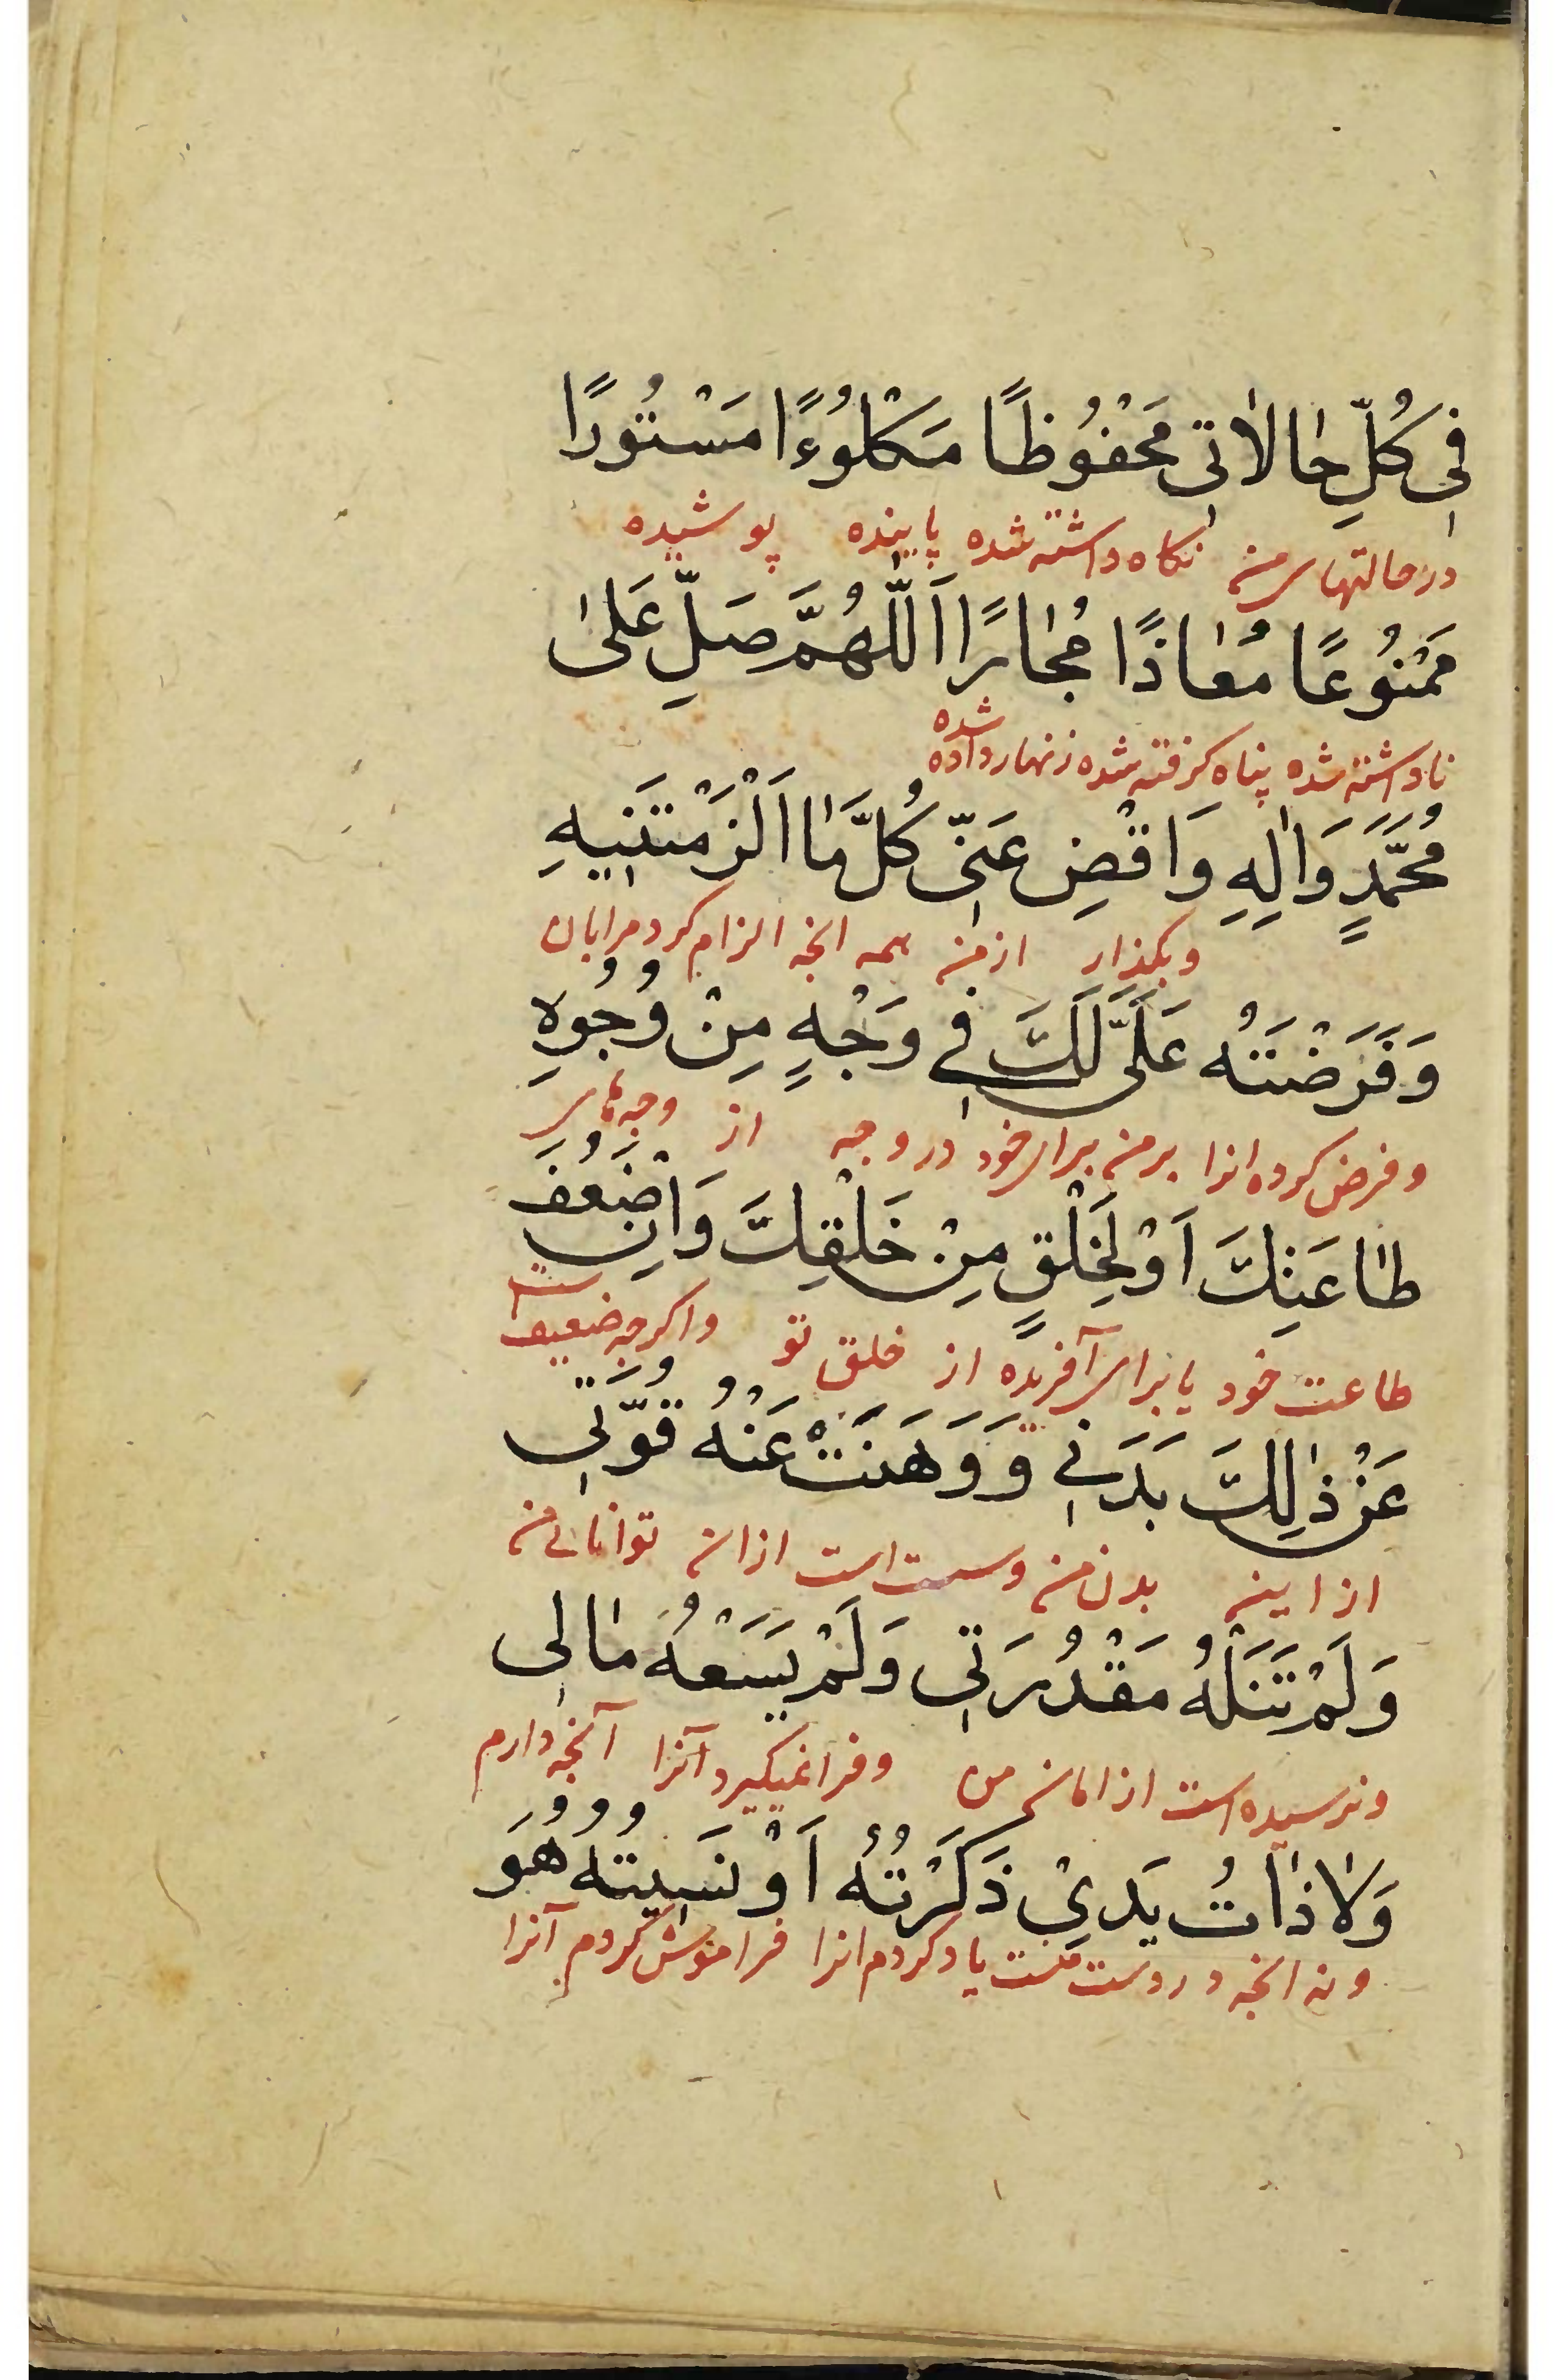 فِي كُلِّ حٰالاٰتِي مَحْفُوظًا مَكْلُوءًا مَسْتُورًا
در حالتهای من نکاه داشته شده پاینده پوشیده
مَمْنُوعًا مُعٰاذًا مُجٰارًا اَللّٰهُمَّ صَلِّ عَلىٰ
ناداشته شده پناه کرفته شده زنهار داده شده
مُحَمَّدٍ وَاٰلِهِ وَاقْضِ عَنِّي كُلَّ مٰا اَلْزَمْتَنِيهِ
وبکذار از من همه انجه الزام کرد مرا بان
وَفَرَضْتَهُ عَلَيَّ لَكَ فِي وَجْهٍ مِنْ وُجُوهِ
وفرض کرده انرا بر من برای خود در وجه از وجه‌های
طٰاعَتِكَ اَوْ لِخَلْقٍ مِنْ خَلْقِكَ وَاِنْ ضَعُفَ
طاعت خود یا برای آفریده از خلق تو واکرچه ضعیف است
عَنْ ذٰلِكَ بَدَنِي وَوَهَنَتْ عَنْهُ قُوَّتِي
از این بدن من وسست است از ان توانائی من
وَلَمْ تَنَلْهُ مَقْدُرَتِي وَلَمْ يَسَعْهُ مٰالِي
ونرسیده است از امان من وفرا نمیکیرد آنرا آنچه دارم
وَلاٰ ذٰاتُ يَدِيْ ذَكَرْتُهُ اَوْ نَسِيتُهُ هُوَ
ونه انجه در دست منست یاد کردم انرا فراموش کردم آنرا